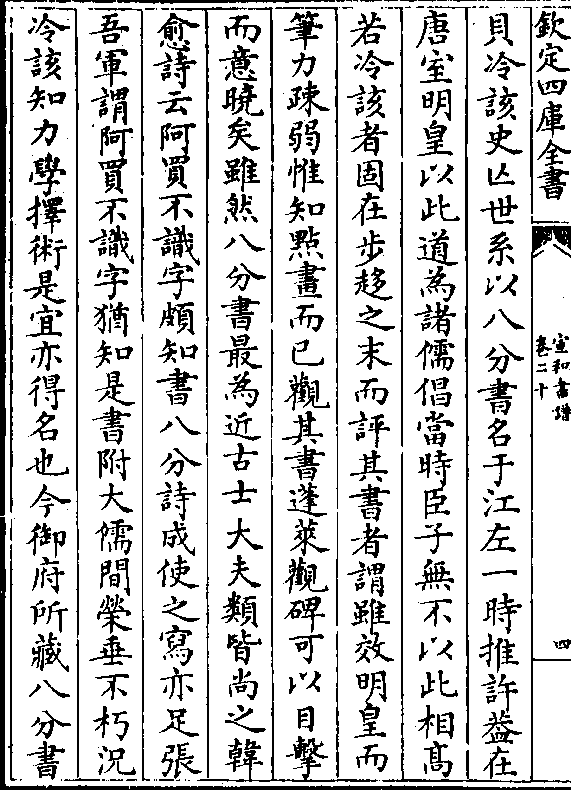 欽定四庫全書
宣和書譜
卷二十
四
貝冷該史亡世系以八分書名于江左一時推許葢在
唐室明皇以此道為諸儒倡當時臣子無不以此相髙
若冷該者固在步趍之末而評其書者謂雖效明皇而
筆力疎弱惟知點畫而已觀其書蓬萊觀碑可以目擊
而意曉矣雖然八分書最為近古士大夫類皆尚之韓
愈詩云阿買不識字頗知書八分詩成使之寫亦足張
吾軍謂阿買不識字猶知是書附大儒間榮垂不朽況
冷該知力學擇術是宜亦得名也今御府所藏八分書